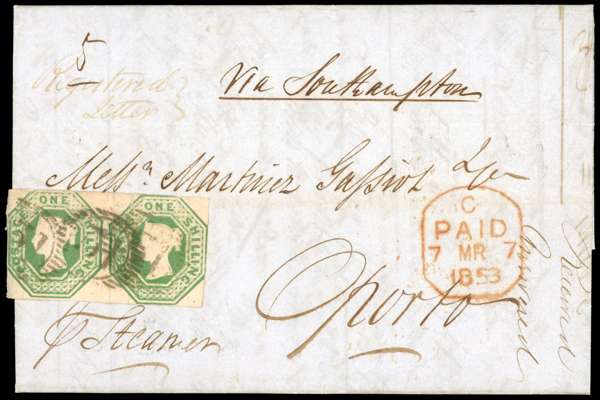 5
Registered
Letter
Via Southampton
Messrs Martinez Gassiot & Co
ONE SHILLING
ONE SHILLING
C
PAID
7 MR 7
1853
Oporto
p Steamer